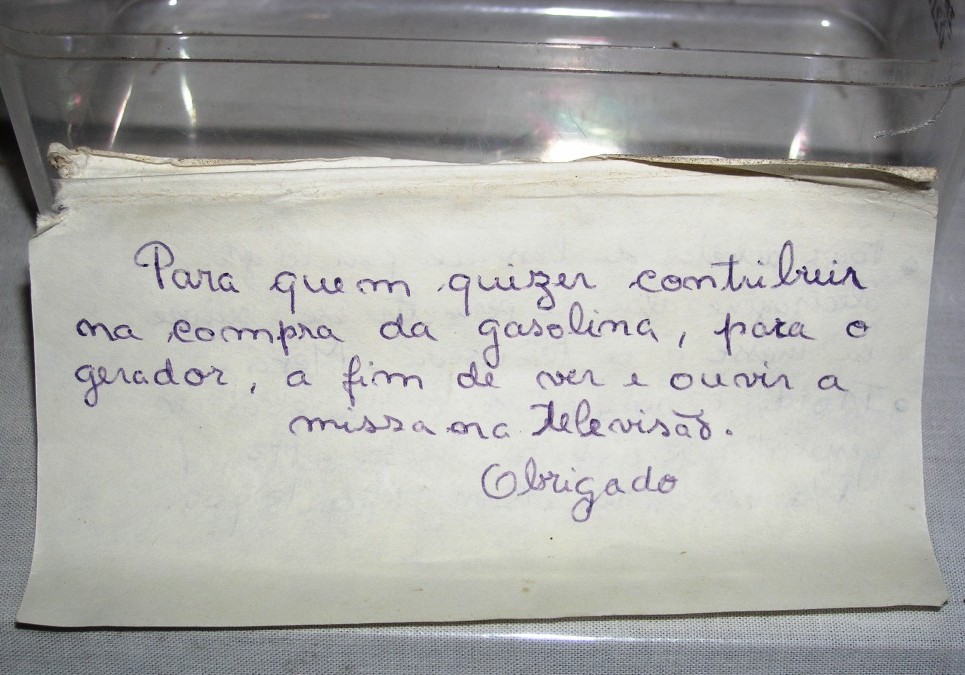 Para quem quizer contribuir
na compra da gasolina, para o
gerador, a fim de ver e ouvir a
missa na televisão.
Obrigado